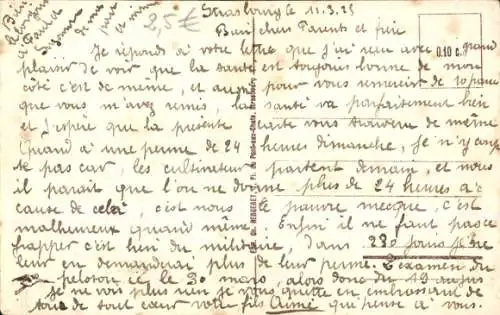 Strasbourg le 11.3.25
2,5€
Bien chers Parents et frère
0.10 c.
Je réponds à votre lettre que j'ai reçu avec grand
plaisir de voir que la santé est toujours bonne de mon
côté c'est de même, et aussi pour vous remercier de 10 francs
que vous m'avez remis, la santé va parfaitement bien
et j'espère que la présente carte vous trouvera de même
Quand à une perme de 24 heures dimanche, je n'y compte
pas car, les cultivateurs partent demain, et nous
il parait que l'on ne donne plus de 24 heures a
cause de cela, c'est nous le pauvre mecque, c'est
malheureux quand même. Enfin il ne faut pas ce
frapper c'est rien du militaire, dans 230 jours je ne
leur en demanderai plus de leur perme. L'examen du
peloton le 30 mars, alors donc du 19 au
je ne vous plus rien je vous quitte en embrassant de
tous de tout cœur votre fils Aimé qui pense à vous.